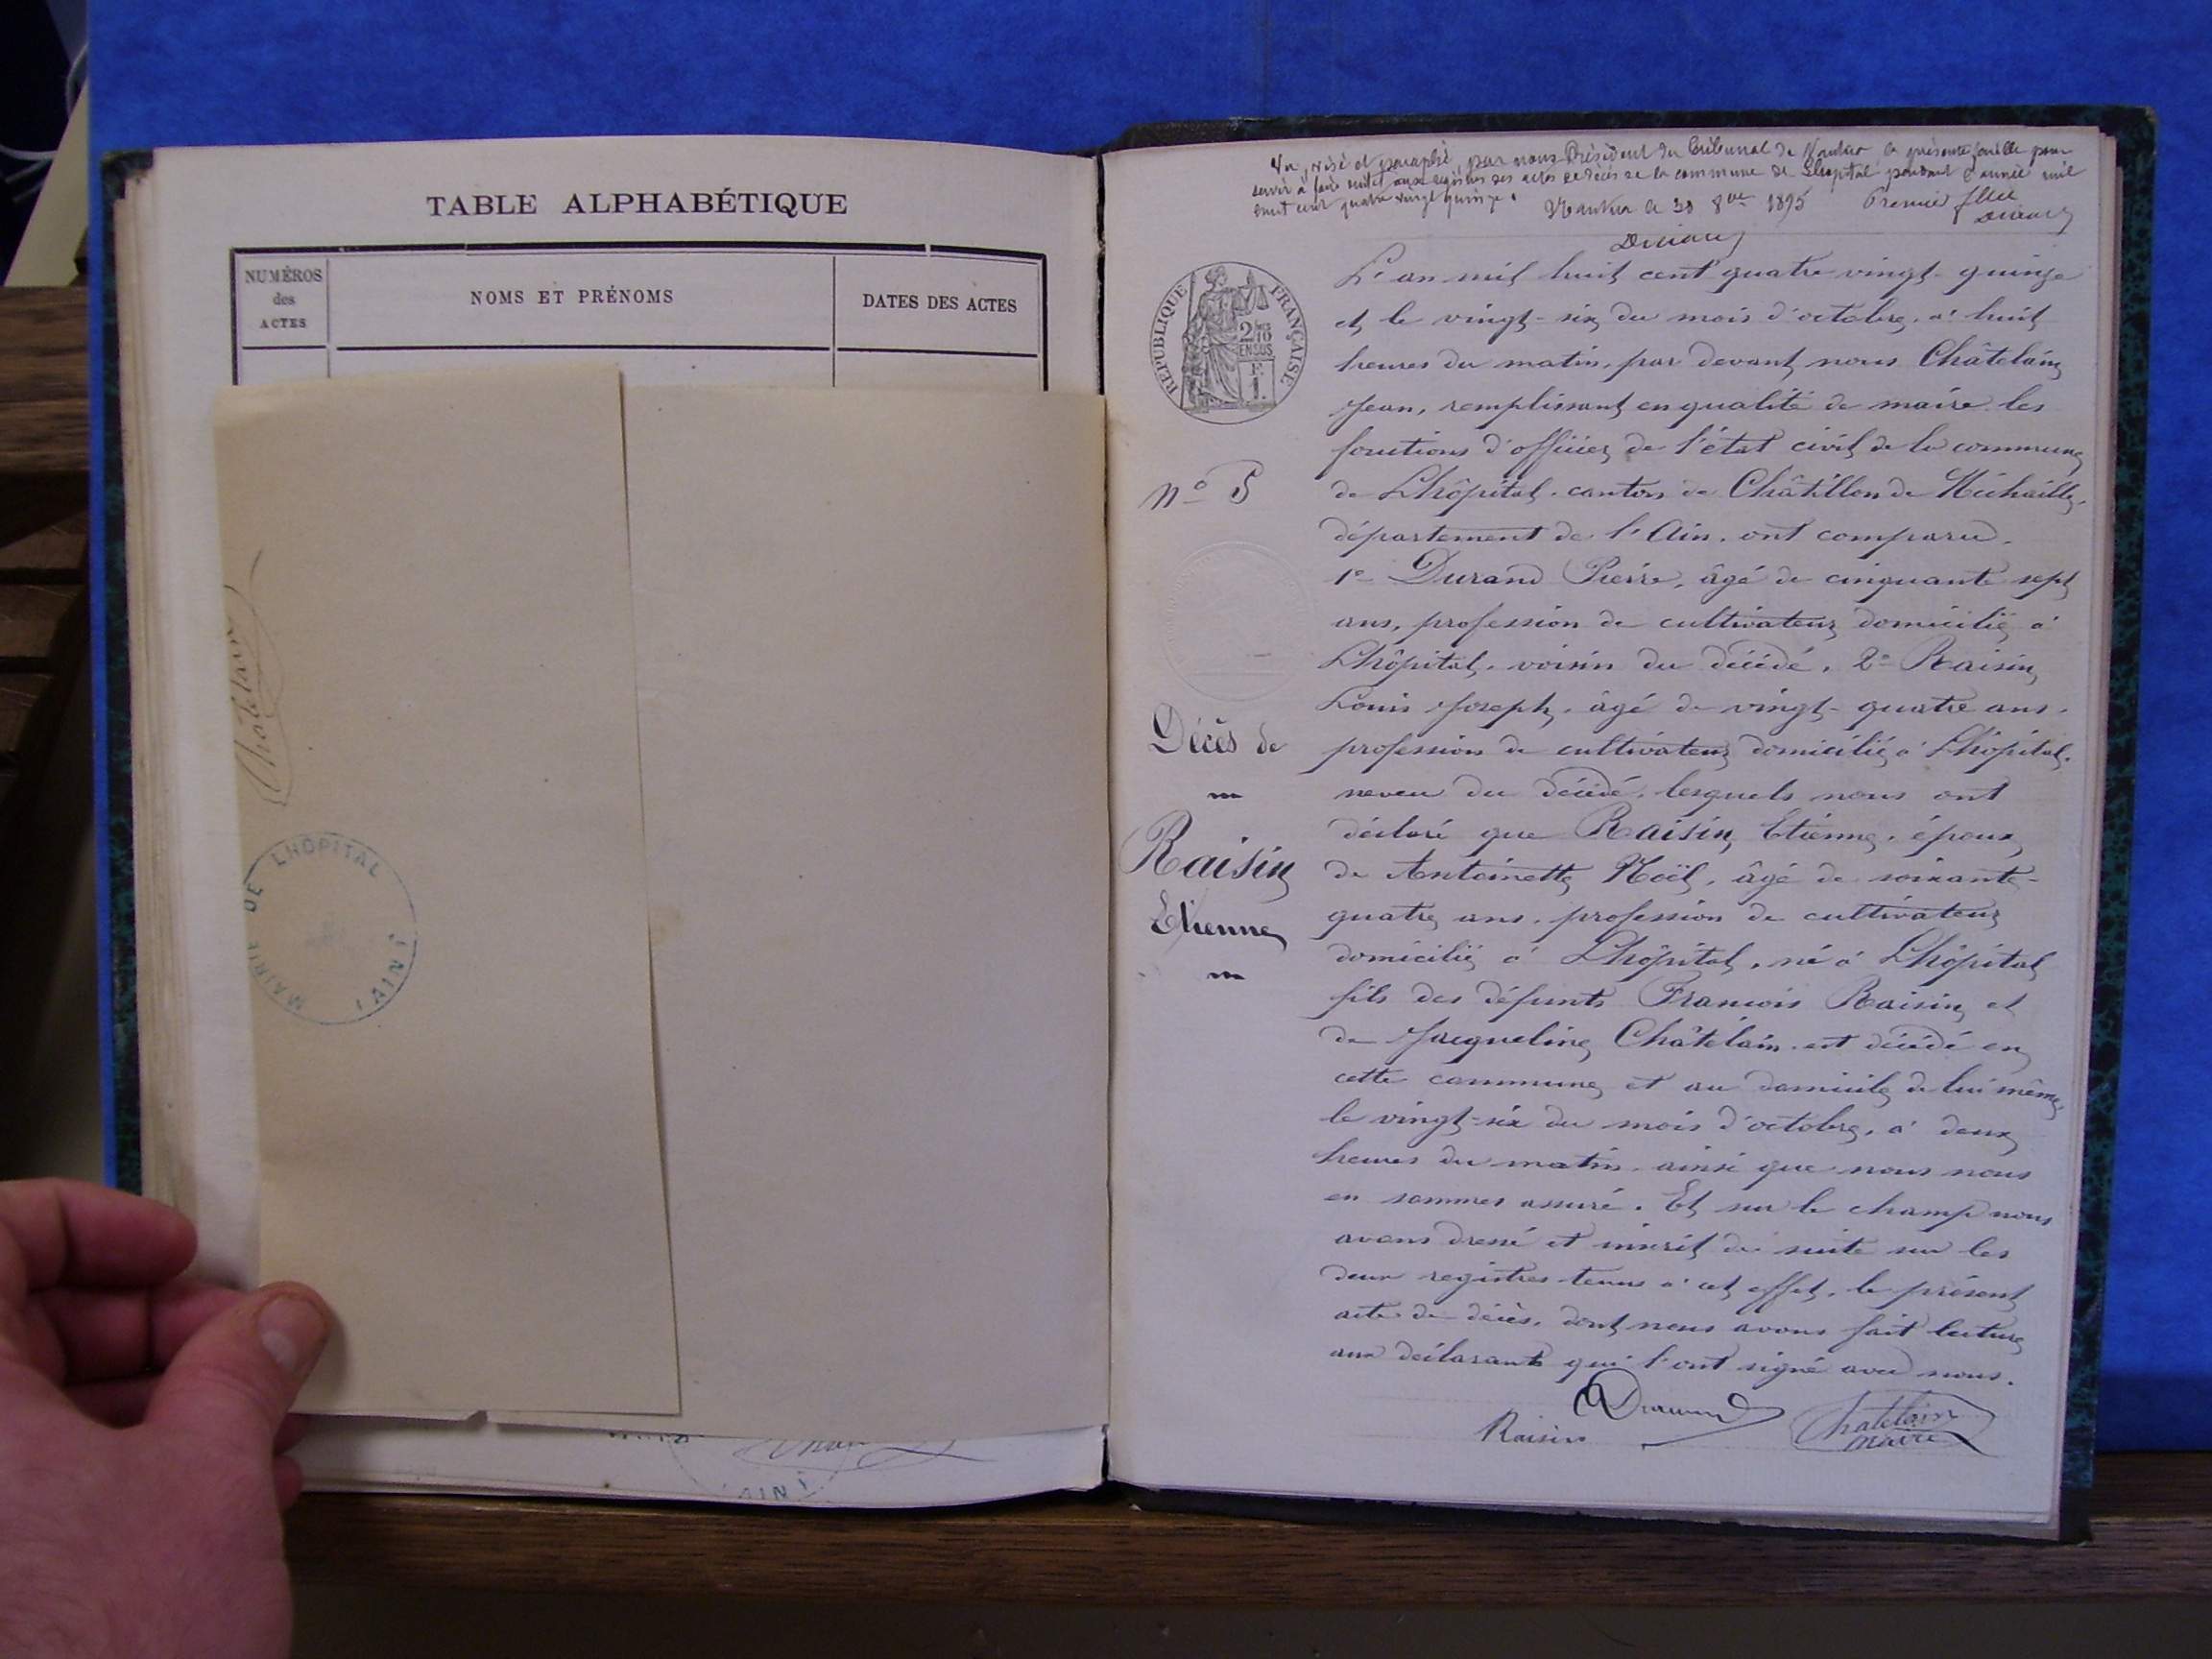 TABLE ALPHABÉTIQUE
NUMÉROS
des
ACTES
NOMS ET PRÉNOMS
DATES DES ACTES
Châtelain
MAIRIE DE LHOPITAL
(AIN)
AIN
Vu, visé et paraphé, par nous Président du Tribunal de Nantua la présente feuille pour
servir à faire suite aux registres des actes de décès de la commune de Lhopital pendant l'année mil
huit cent quatre vingt quinze.
Nantua le 30 8bre 1895 Premier flle
RÉPUBLIQUE FRANÇAISE
2/10
EN SUS
F.
1.
L'an mil huit cent quatre-vingt-quinze
et le vingt-six du mois d'octobre, à huit
heures du matin, par devant nous Châtelain
Jean, remplissant en qualité de maire les
fonctions d'officier de l'état civil de la commune
de Lhôpital, canton de Châtillon de Michaille,
département de l'Ain, ont comparu.
1° Durand Pierre, âgé de cinquante sept
ans, profession de cultivateur domicilié à
Lhôpital, voisin du décédé, 2° Raisin
Louis Joseph, âgé de vingt-quatre ans,
profession de cultivateur domicilié à Lhôpital,
neveu du décédé, lesquels nous ont
déclaré que Raisin Etienne, époux
de Antoinette Noël, âgé de soixante-
quatre ans, profession de cultivateur
domicilié à Lhôpital, né à Lhôpital
fils des défunts François Raisin et
de Jacqueline Châtelain est décédé en
cette commune et au domicile de lui même,
le vingt-six du mois d'octobre, à deux
heures du matin, ainsi que nous nous
en sommes assuré. Et sur le champ nous
avons dressé et inscrit de suite sur les
deux registres tenus à cet effet, le présent
acte de décès, dont nous avons fait lecture
aux déclarants qui l'ont signé avec nous.
N° 5
Décès de
Raisin
Etienne
Durand
Raisin
Chatelain
maire